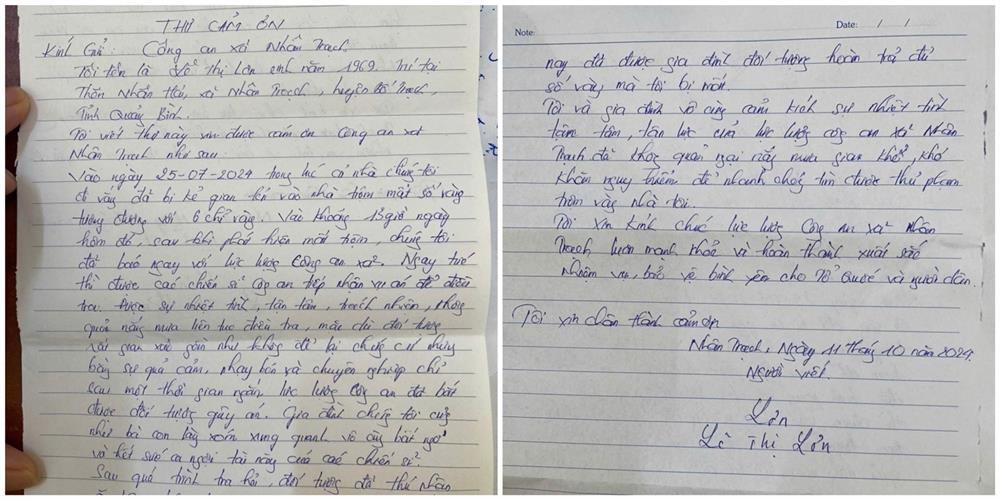 THƯ CẢM ƠN
Kính Gửi: Công an xã Nhân Trạch
Tôi tên là Lê Thị Lơn sinh năm 1969. Trú tại
Thôn Nhân Hải, xã Nhân Trạch, huyện Bố Trạch,
Tỉnh Quảng Bình.
Tôi viết thư này xin được cám ơn Công an xã
Nhân Trạch như sau
Vào ngày 25-07-2024 trong lúc cả nhà chúng tôi
đi vắng đã bị kẻ gian lẻn vào nhà trộm mất số vàng
tương đương với 6 chỉ vàng. Vào khoảng 13 giờ ngày
hôm đó, sau khi phát hiện mất trộm, chúng tôi
đã báo ngay với lực lượng Công an xã. Ngay tức
thì được các chiến sĩ Công an tiếp nhận vụ án để điều
tra. được sự nhiệt tình, tận tâm, trách nhiệm, không
quản nắng mưa liên tục điều tra, mặc dù đối tượng
rất gian xảo gần như không để lại chứng cứ nhưng
bằng sự quả cảm, nhạy bén và chuyên nghiệp chỉ
sau một thời gian ngắn lực lượng công an đã bắt
được đối tượng gây án. Gia đình chúng tôi cũng
như bà con làng xóm xung quanh vô cùng bất ngờ
và hết sức ca ngợi tài năng của các chiến sĩ.
Sau quá trình tra hỏi, đối tượng đã thú nhận
Note:
Date: / /
nay đã được gia đình đối tượng hoàn trả đủ
số vàng mà tôi bị mất.
Tôi và gia đình vô cùng cảm kích sự nhiệt tình
tâm, tận lực của lực lượng công an xã Nhân
Trạch đã không quản ngại nắng mưa gian khổ, khó
khăn nguy hiểm để nhanh chóng tìm được thủ phạm
trộm vàng nhà tôi.
Tôi xin kính chúc lực lượng Công an xã Nhân
Trạch luôn mạnh khoẻ và hoàn thành xuất sắc
nhiệm vụ, bảo vệ bình yên cho Tổ Quốc và người dân.
Tôi xin chân thành cảm ơn
Nhân Trạch, Ngày 11 tháng 10 năm 2024
Người viết
Lơn
Lê Thị Lơn